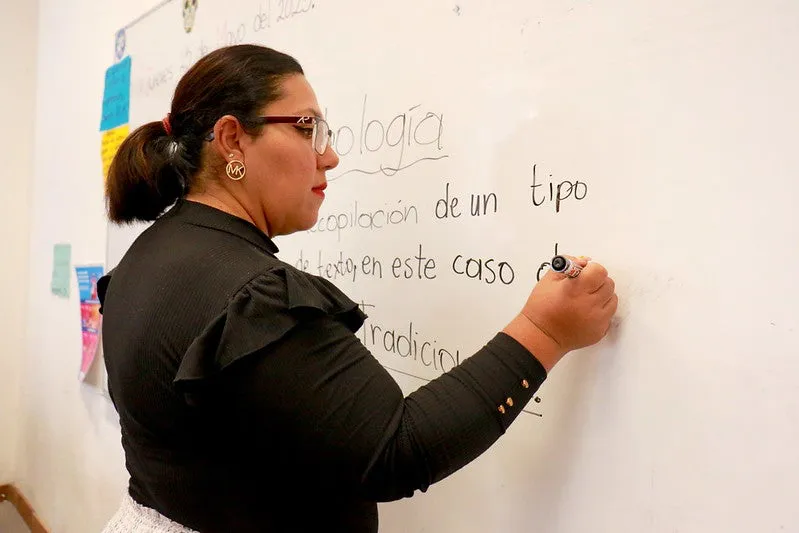 de Mayo del 2025.
ología
ecopilación de un tipo
de texto, en este caso d
Tradicio
MK